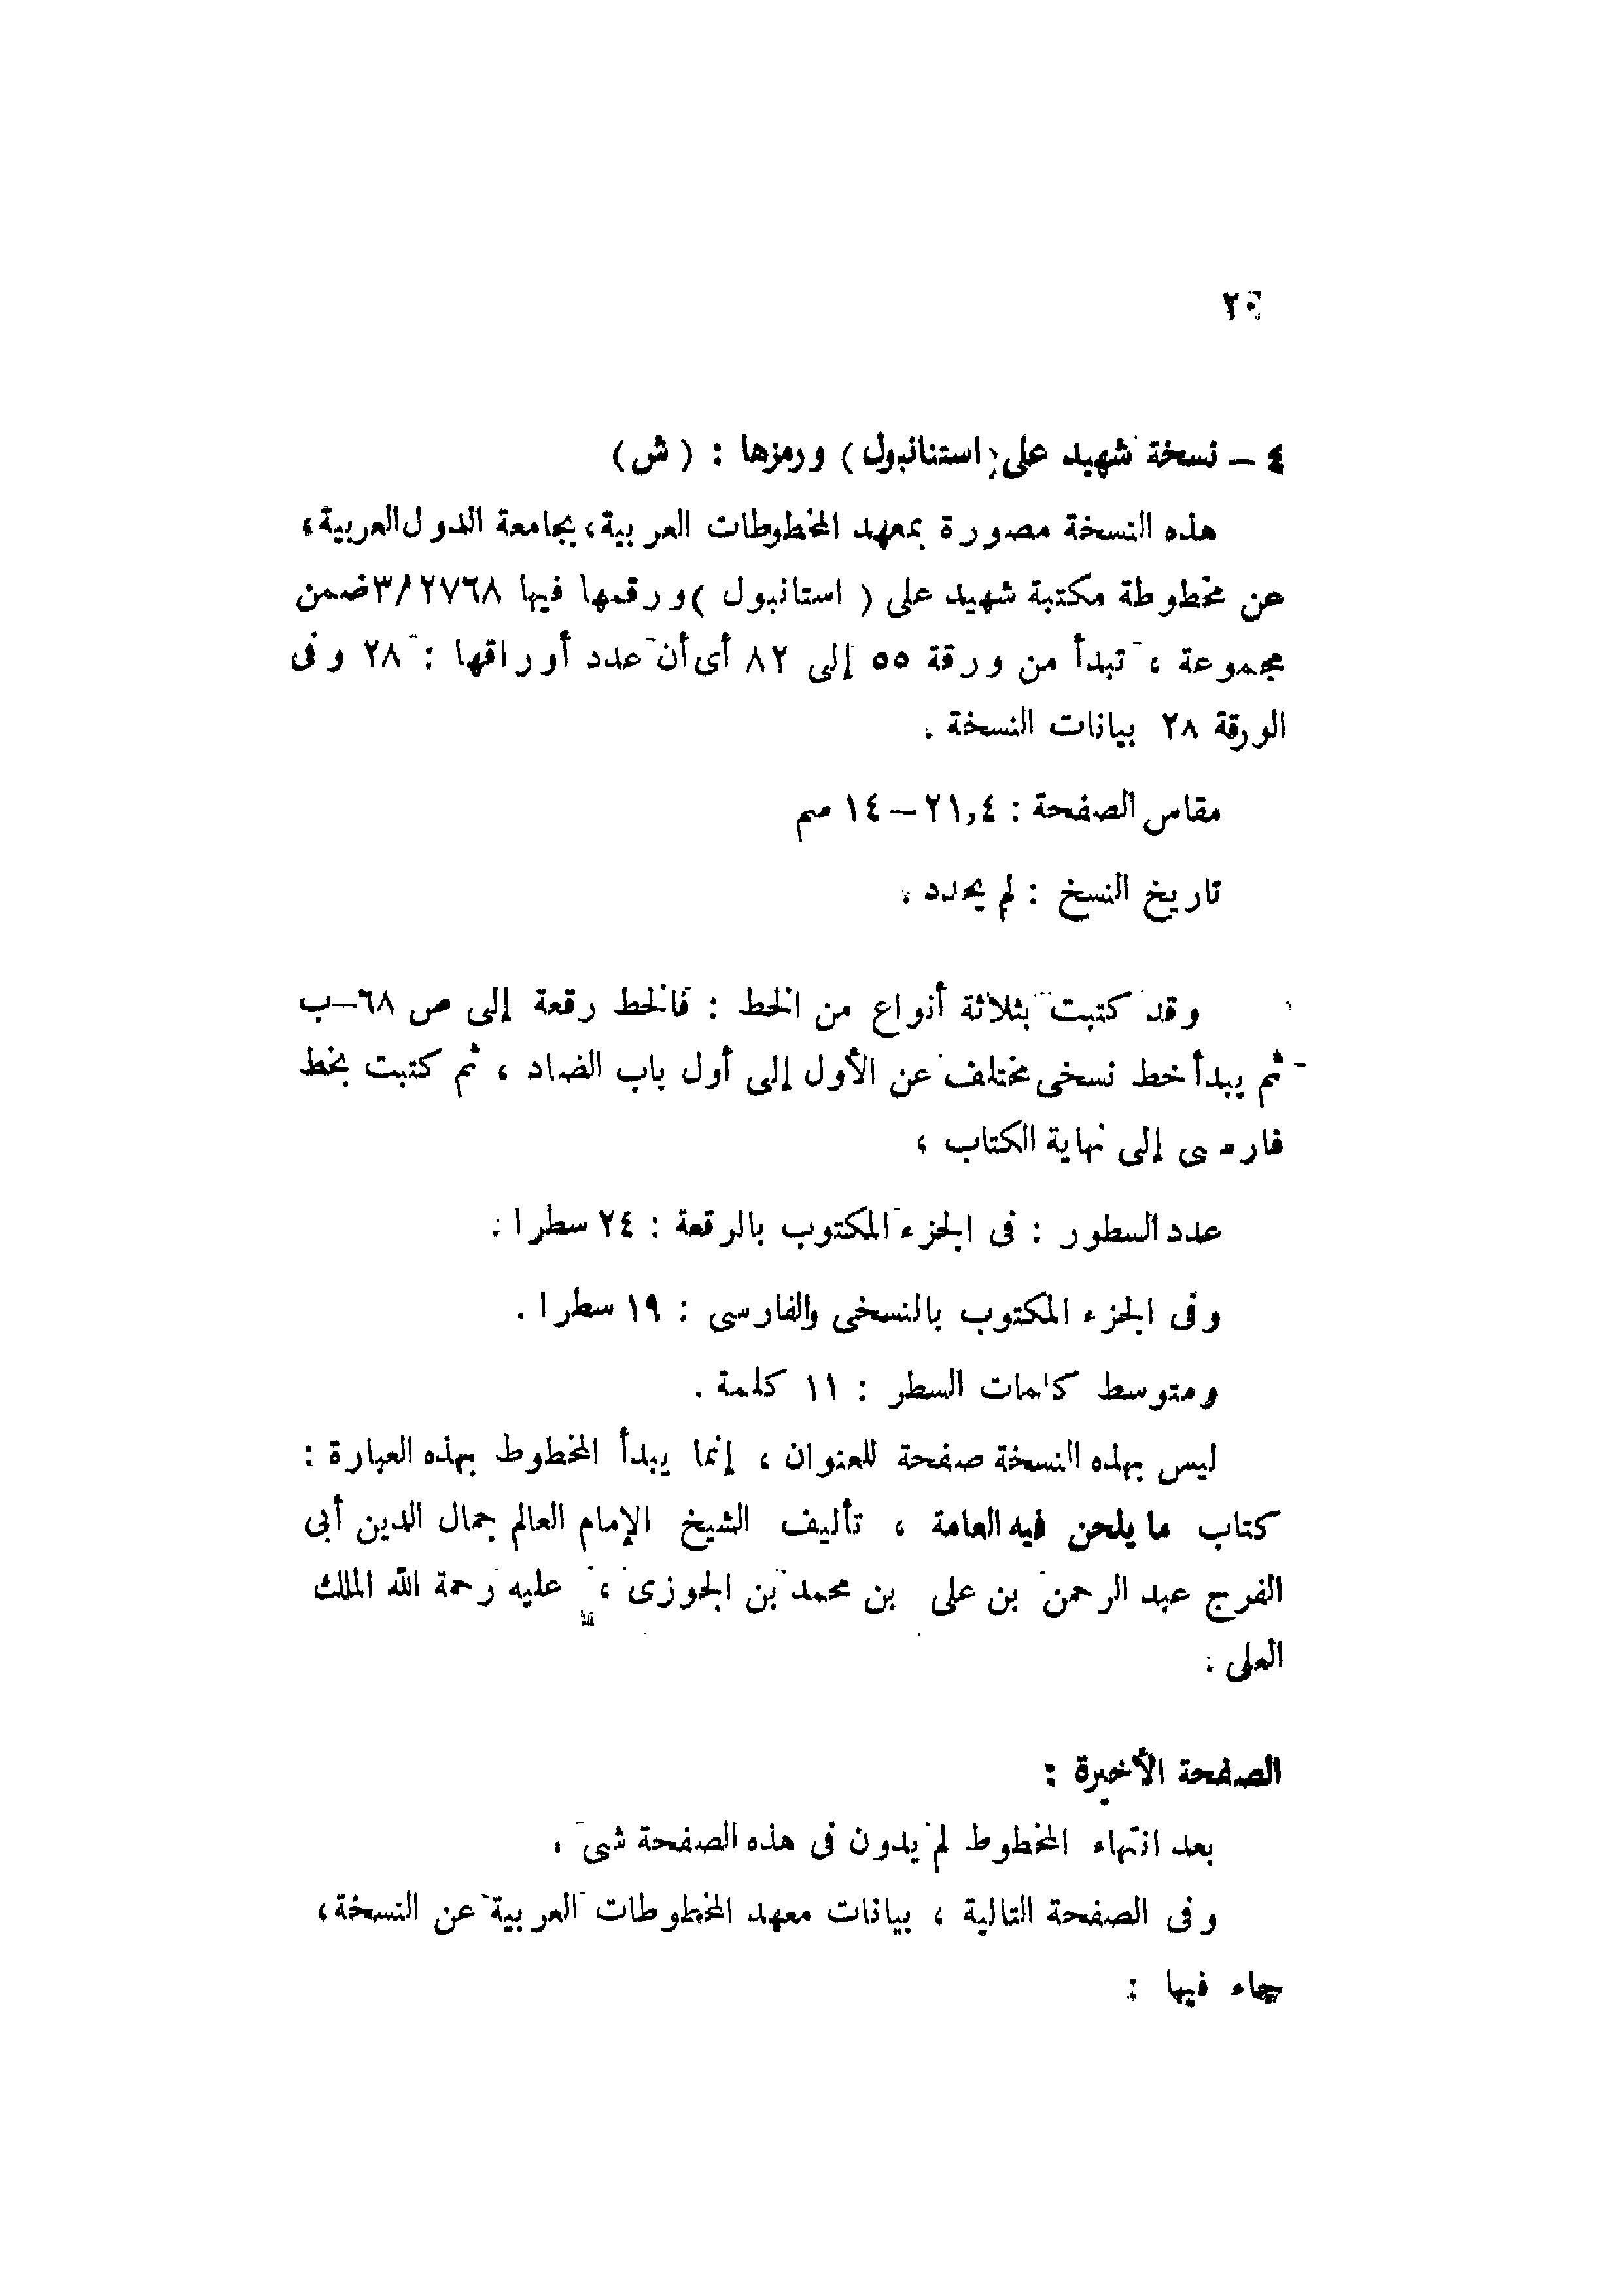 ٤ – نسخة شهيد على (استنانبول) ورمزها : (ش)
هذه النسخة مصورة بمعهد المخطوطات العربية، بجامعة الدول العربية،
عن مخطوطة مكتبة شهيد على ( استانبول ) ورقمها فيها ٣/٢٧٦٨ ضمن
مجموعة ، تبدأ من ورقة ٥٥ إلى ٨٢ أى أن عدد أوراقها : ٢٨ وفى
الورقة ٢٨ بيانات النسخة .
مقاس الصفحة : ٢١,٤ – ١٤ سم
تاريخ النسخ : لم يحدد .
وقد كتبت بثلاثة أنواع من الخط : فالخط رقعة إلى ص ٦٨–ب
ثم يبدأ خط نسخى مختلف عن الأول إلى أول باب الضاد ، ثم كتبت بخط
فارسى إلى نهاية الكتاب ،
عدد السطور : فى الجزء المكتوب بالرقعة : ٢٤ سطرا .
وفى الجزء المكتوب بالنسخى والفارسى : ١٩ سطرا .
ومتوسط كلمات السطر : ١١ كلمة .
ليس بهذه النسخة صفحة للعنوان ، إنما يبدأ المخطوط بهذه العبارة :
كتاب ما يلحن فيه العامة ، تأليف الشيخ الإمام العالم جمال الدين أبى
الفرج عبد الرحمن بن على بن محمد بن الجوزى ، عليه رحمة الله الملك
العلى .
الصفحة الأخيرة :
بعد انتهاء المخطوط لم يدون فى هذه الصفحة شى .
وفى الصفحة التالية ، بيانات معهد المخطوطات العربية عن النسخة،
جاء فيها :